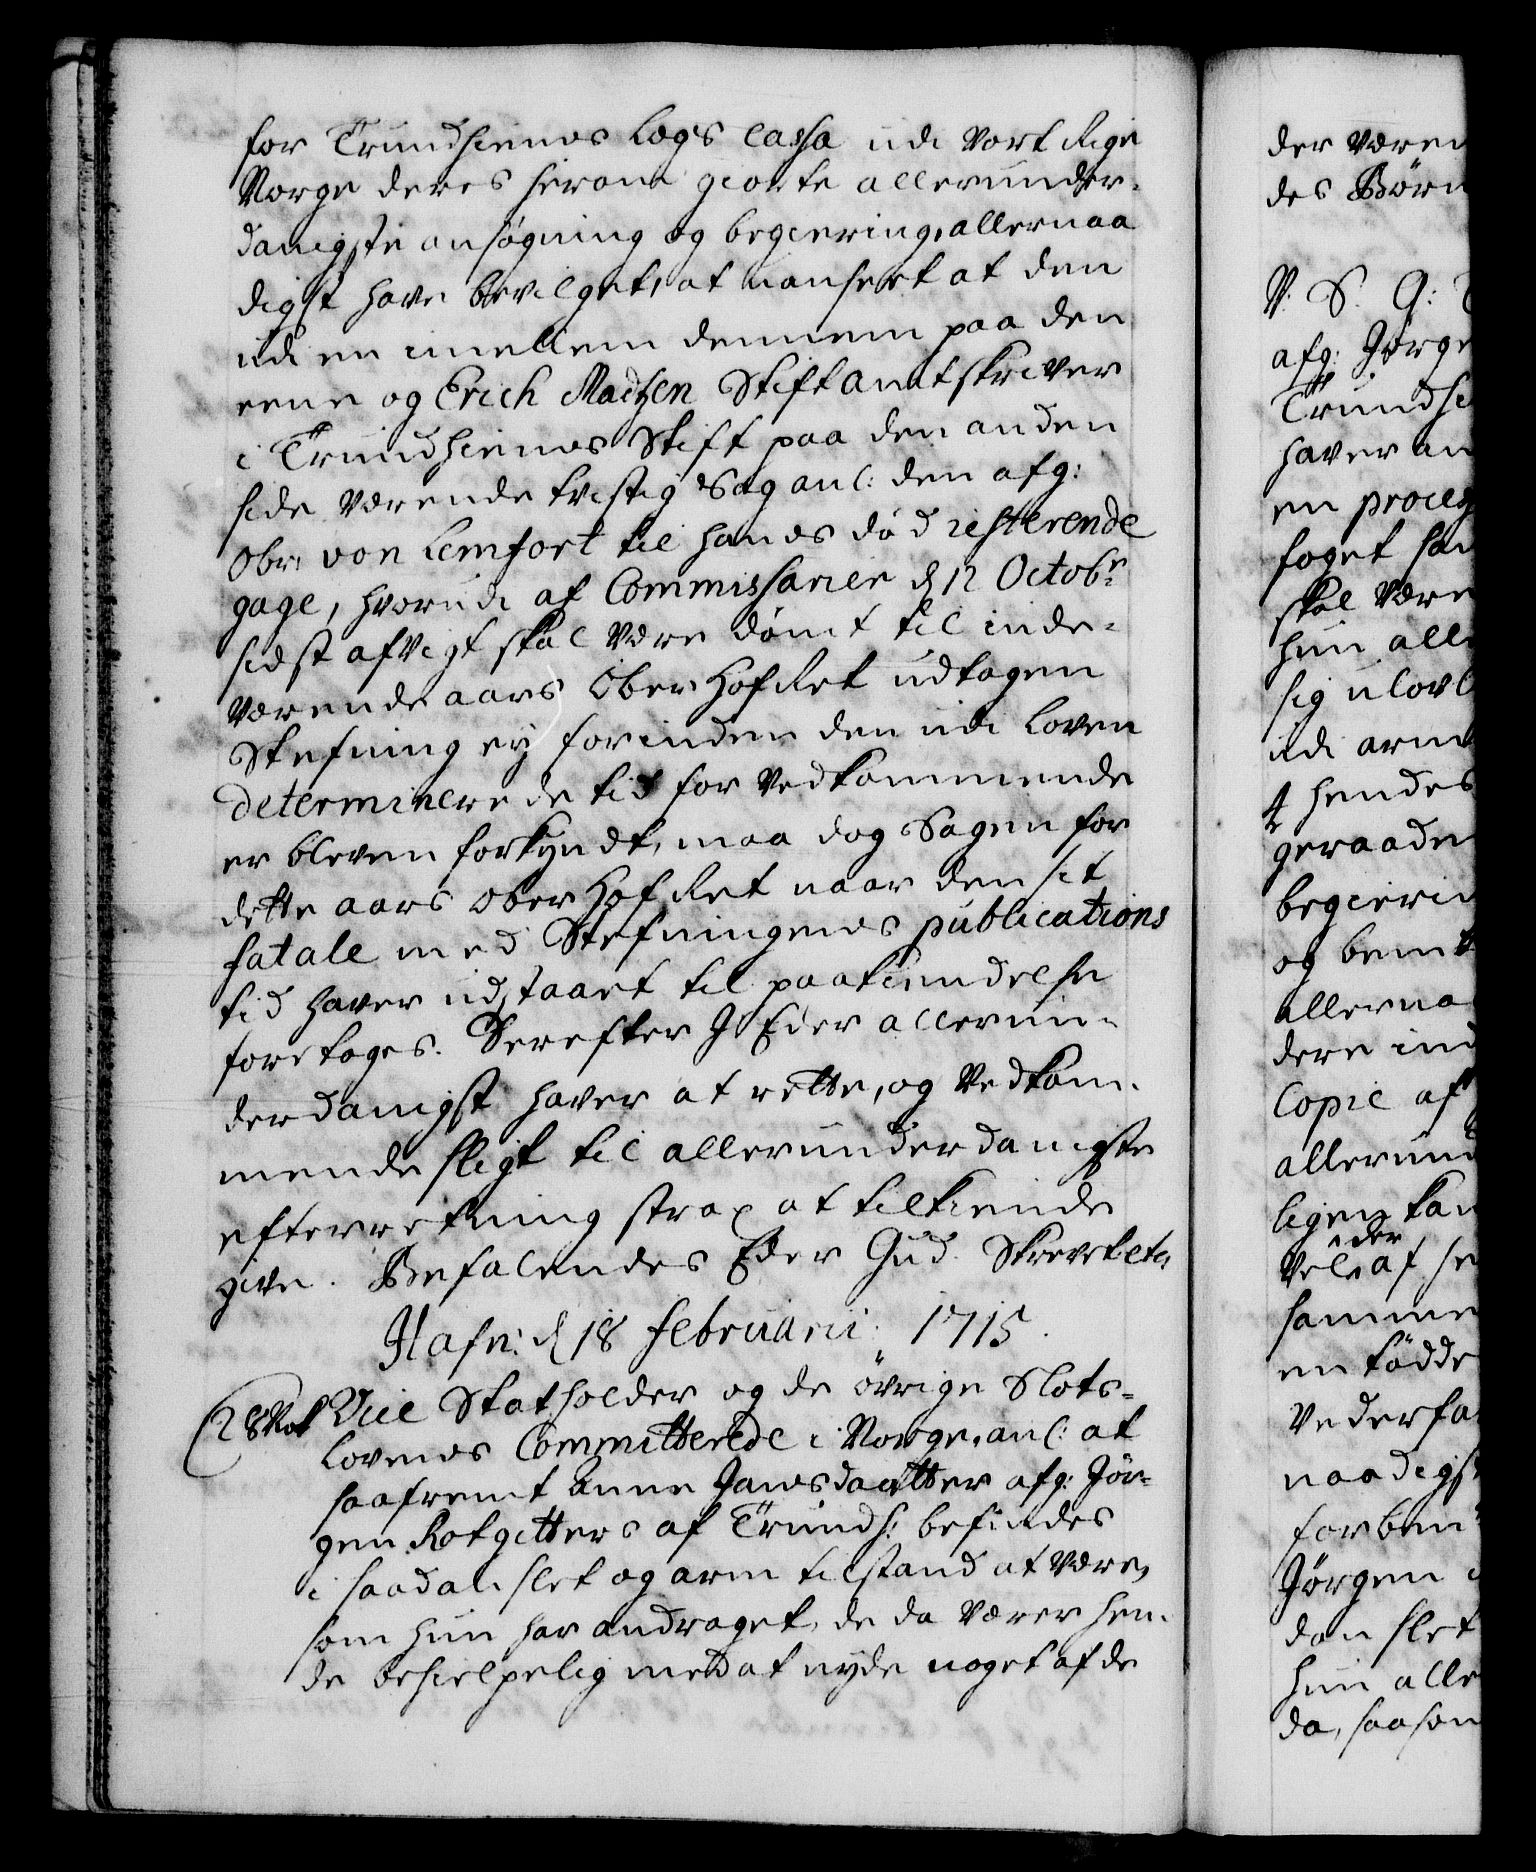 for Trundhiems Legs Cassa udi Vort Rige
Norge deres herom giorte allerunder-
danigste ansøgning og begiering, allernaa
digst have bevilget, at uanseet at den
udi en imellem dennem paa den
eene og Erich Madtzen Stiftamtskriver
i Trundhiems Stift paa den anden
side Værende tvistig Sag anl: den afg:
Obr: von Lemfort til hans død resterende
gage, hvorudi af Commissarier d 12 Octobr:
sidst afvigt skal Være dømt til inde-
Værende aars Ober Hof Ret udtagen
Stefning ey forinden den udi Loven
determinerede tid for Vedkommende
er bleven forkyndt, maa dog Sagen for
dette aars Ober Hof Ret naar den sit
fatale med Stefningens publications
tid haver udstaaet til paakiendelse
foretages. Derefter I Eder allerun-
derdanigst haver at rette, og Vedkom-
mende sligt til allerunderdanigste
efterretning strax at tilkiende
give. Befalendes Eder Gud. Skrevet etc
Hafn: d 18 Februarii: 1715.
(28 Not Vice Statholder og de øvrige Slots-
Lovens Committerede i Norge, anl: at
saafremt Anne Jansdaatter afg: Jør-
gen Rotgitters af Trundh: befindes
i saadan slet og arm tilstand at Være,
som hun har andraget, de da Værer hen-
de behielpelig med at nyde noget af de
der Væren
des Børn
V. S. G:
afg: Jørge
Trundhi
haver an
en proces
foget san
skal Være
hun alle
sig ulovl
udi arm
hendes
geraade
begierin
og bemt
allerna
dere ind
Copie af
allerund
ligen kan
Vel eder af se
samme
en fødde
Vederfa
naadigst
forbem
Jørgen
dan slet
hun alle
da, saasom